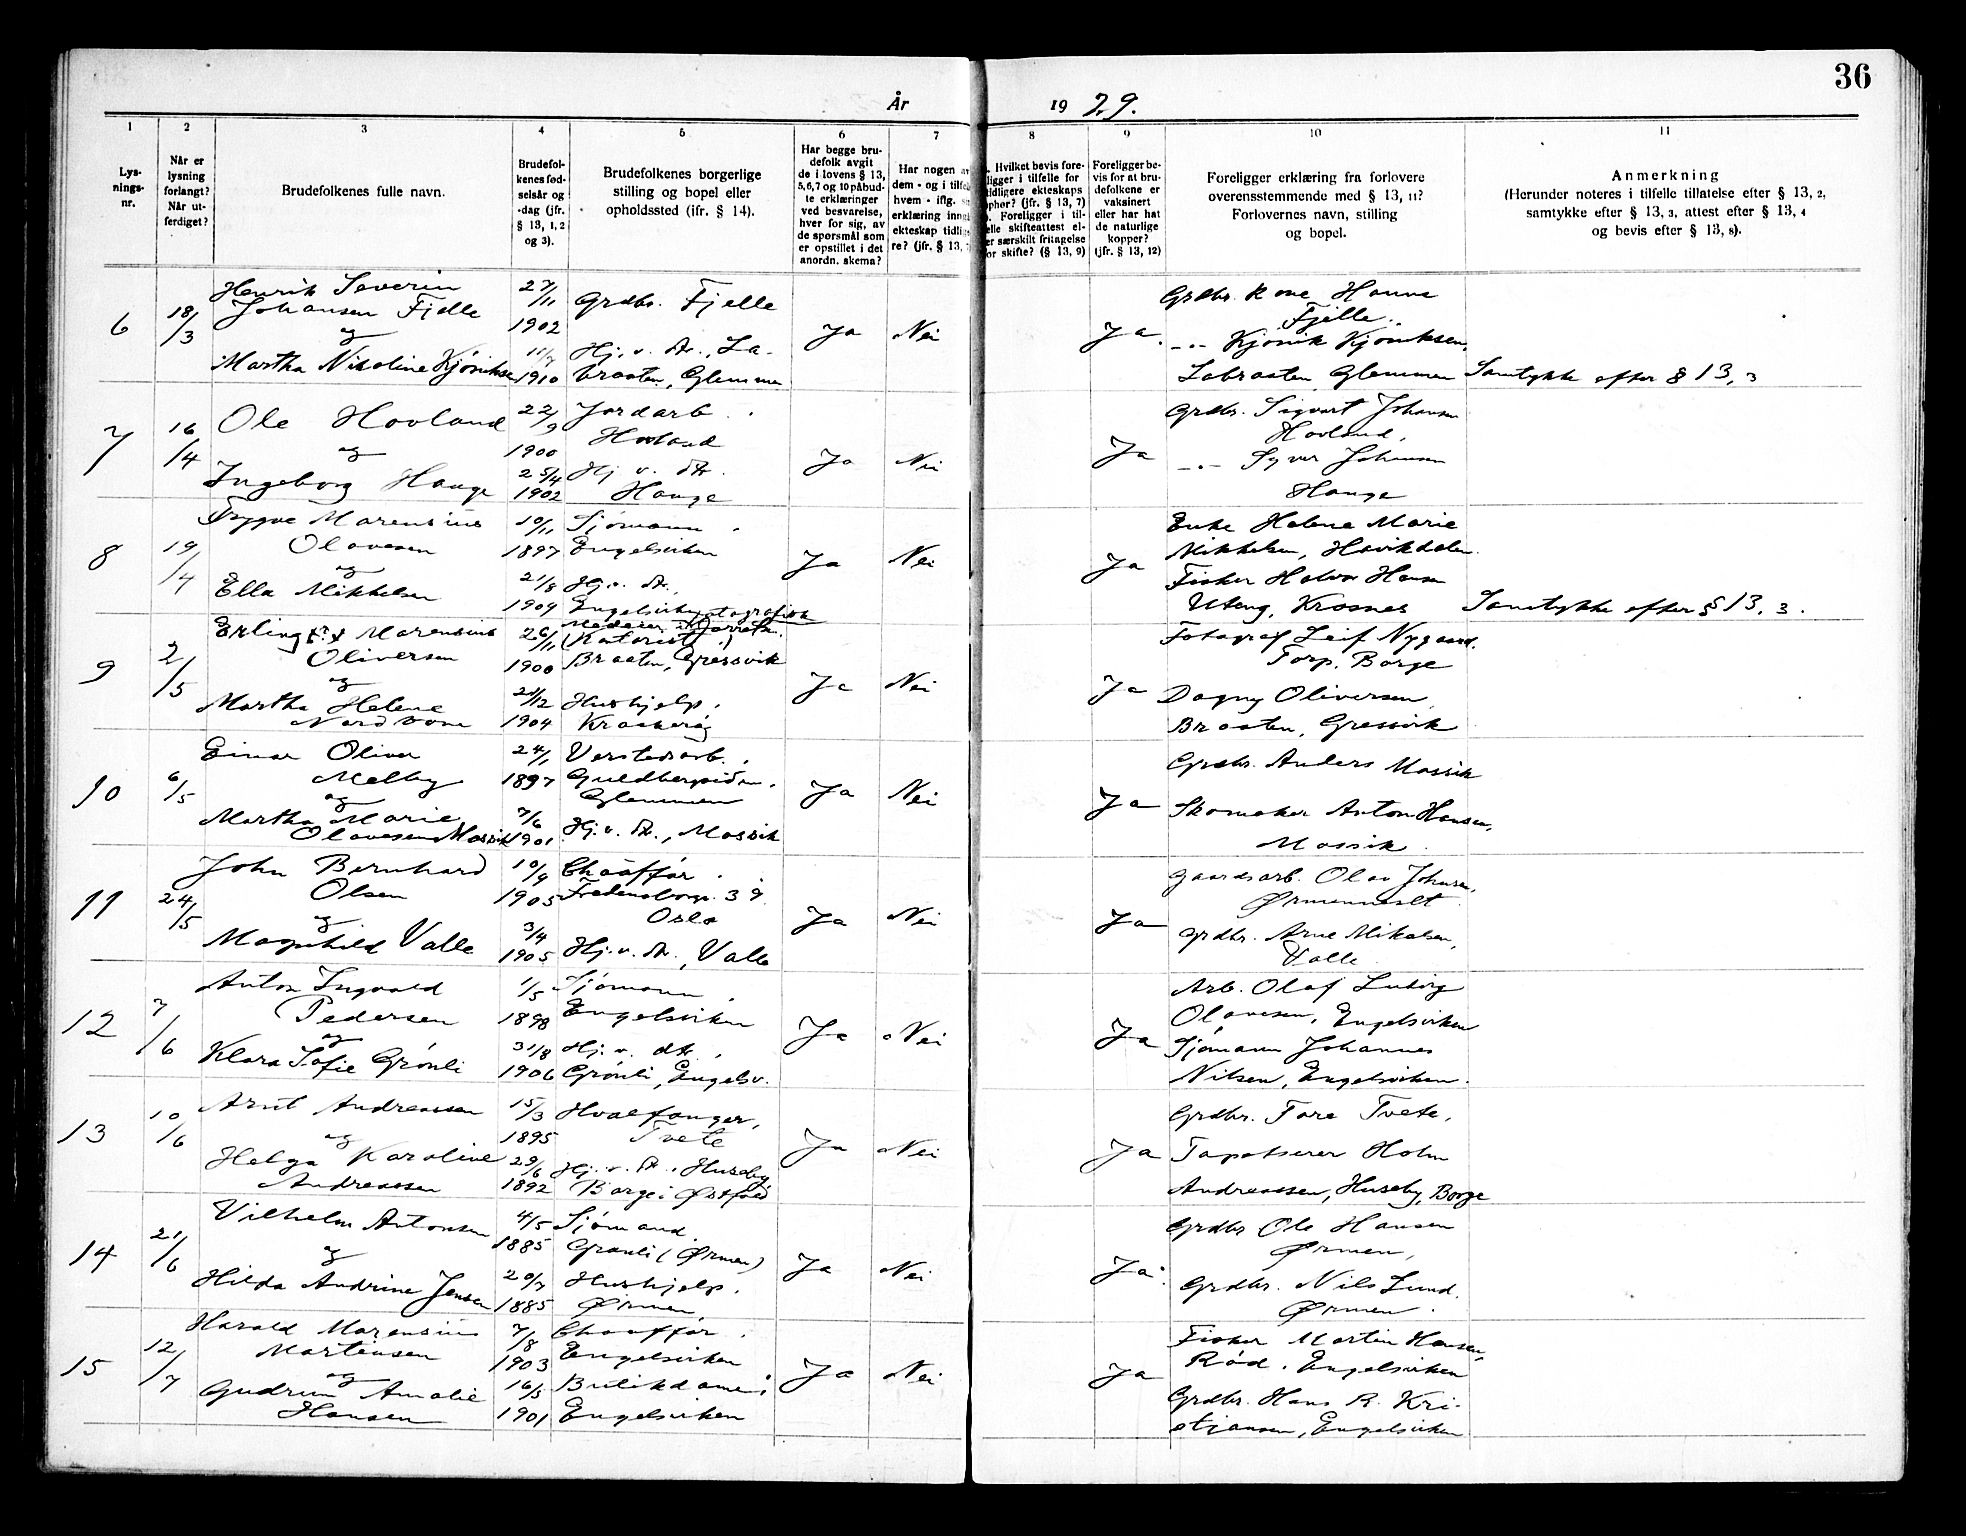 36
År 1929.
1 2 3 4 5 6 7 8 9 10 11
Lys-
nings-
nr.
Når er
lysning
forlangt?
Når ut-
ferdiget?
Brudefolkenes fulle navn.
Brudefol-
kenes fød-
selsår og
-dag (jfr.
§ 13, 1, 2
og 3).
Brudefolkenes borgerlige
stilling og bopel eller
opholdssted (ifr. § 14).
Har begge bru-
defolk avgit
de i lovens § 13,
5, 6, 7 og 10 påbud-
te erklæringer
ved besvarelse,
hver for sig, av
de spørsmål som
er opstillet i det
anordn. skema?
Har nogen av
dem - og i tilfe
hvem - iflg.
erklæring inng
ekteskap tidli
re? (jfr. § 13,
. Hvilket bevis fore-
ligger i tilfelle for
tidligere ekteskaps
ophør? (jfr. § 13, 7)
. Foreligger i til-
elle skifteattest el-
er særskilt fritagelse
for skifte? (§ 13, 9)
Foreligger be-
vis for at bru-
defolkene er
vaksinert
eller har hat
de naturlige
kopper?
(jfr. § 13, 12)
Foreligger erklæring fra forlovere
overensstemmende med § 13, 11?
Forlovernes navn, stilling
og bopel.
Anmerkning
(Herunder noteres i tilfelle tillatelse efter § 13, 2,
samtykke efter § 13, 3, attest efter § 13, 4
og bevis efter § 13, 8).
6
18/3
Henrik Severin
Johansen Fjelle
og
Martha Nikoline Kjøniksen
27/11
1902
11/7
1910
Grdbr. Fjelle
Hj. v. dt., La-
braaten, Glemmen
Ja
Nei
Ja.
Grdbr. Hanne
Fjelle.
-"- Kjønik Kjøniksen,
Labraaten, Glemmen
Samtykke efter § 13, 3
7
16/4
Ole Hovland
og
Ingeborg Hauge
22/9
1900
25/4
1902
Jordarb.
Hovland
Hj v. dt.
Hauge
Ja
Nei
Ja
Grdbr. Sigvart Johansen
Hovland,
-"- Syver Johansen
Hauge
8
19/4
Trygve Marensius
Olavesen
og
Ella Mikkelsen
10/11
1897
21/8
1909
Sjømann.
Engelsviken
Hj. v. dt.,
Engelsviken
Ja
Nei
Ja
Enke Helene Marie
Mikkelsen, Havikdalen
Fisker Halvor Hansen
Uteng, Krosnes
Samtykke efter § 13, 3.
9
2/5
Erling Marensius
Oliversen
og
Martha Helene
Nordvom
26/11
1900
21/12
1904
Braaten, Gressvik
Hushjelp.
Kraakerøy
Ja
Nei
Ja
Fotograf Leif Nygaard.
Torp. Borge
Dagny Oliversen,
Braaten, Gressvik
10
6/5
Einar Oliver
Melby
og
Martha Marie
Olavesen Mossik
24/1
1897
7/6
1901
Verstedsarb.
Guldbergsiden.
Glemmen
Hj. v. dt., Mossik
Ja
Nei
Ja
Grdbr. Anders Mossik
Skomaker Anton Hansen,
Mossik
11
24/5
John Bernhard
Olsen
og
Magnhild Valle
10/9
1905
3/4
1905
Chauffør.
Fredensborgv. 39
Oslo
Hj. v. dt., Valle
Ja
Nei
Ja
Gaardsarb. Olav Johnsen,
grdbr. Arne Mikalsen,
Valle
12
7/6
Anton Ingvald
Pedersen
og
Klara Sofie Grønli
1/5
1898
31/8
1906
Sjømann,
Engelsviken
Hj. v. dt.,
Grønli, Engelsv.
Ja
Nei
Ja
Arb. Olaf Ludvig
Olavesen, Engelsviken
Sjømann Johannes
Nilsen, Engelsviken.
13
10/6
Arnt Andreassen
og
Helga Karoline
Andreassen
15/3
1895
29/6
1892
Hvalfanger,
Tvete
Hj. v. dt., Huseby
Borge i Østfold
Ja
Nei
Ja
Grdbr. Tore Tvete,
Tapetserer Holm
Andreassen, Huseby, Borge
14
21/6
Vilhelm Antonsen
og
Hilda Andrine Jensen
4/5
1885
20/7
1885
Sjømand.
Grønli (Ørmen)
Hushjelp.
Ørmen
Ja
Nei
Ja.
Grdbr Ole Hansen
Ørmen,
Grdbr. Nils Lund.
Ørmen.
15
12/7
Harald Marensius
Martinsen
og
Gudrun Amalie
Hansen
7/8
1903
16/5
1901
Chauffør.
Engelsviken
Butikdame,
Engelsviken
Ja
Nei
Ja
Fisker Martin Hansen,
Rød. Engelsviken
Grdbr. Hans R. Kri-
stjansen, Engelsviken